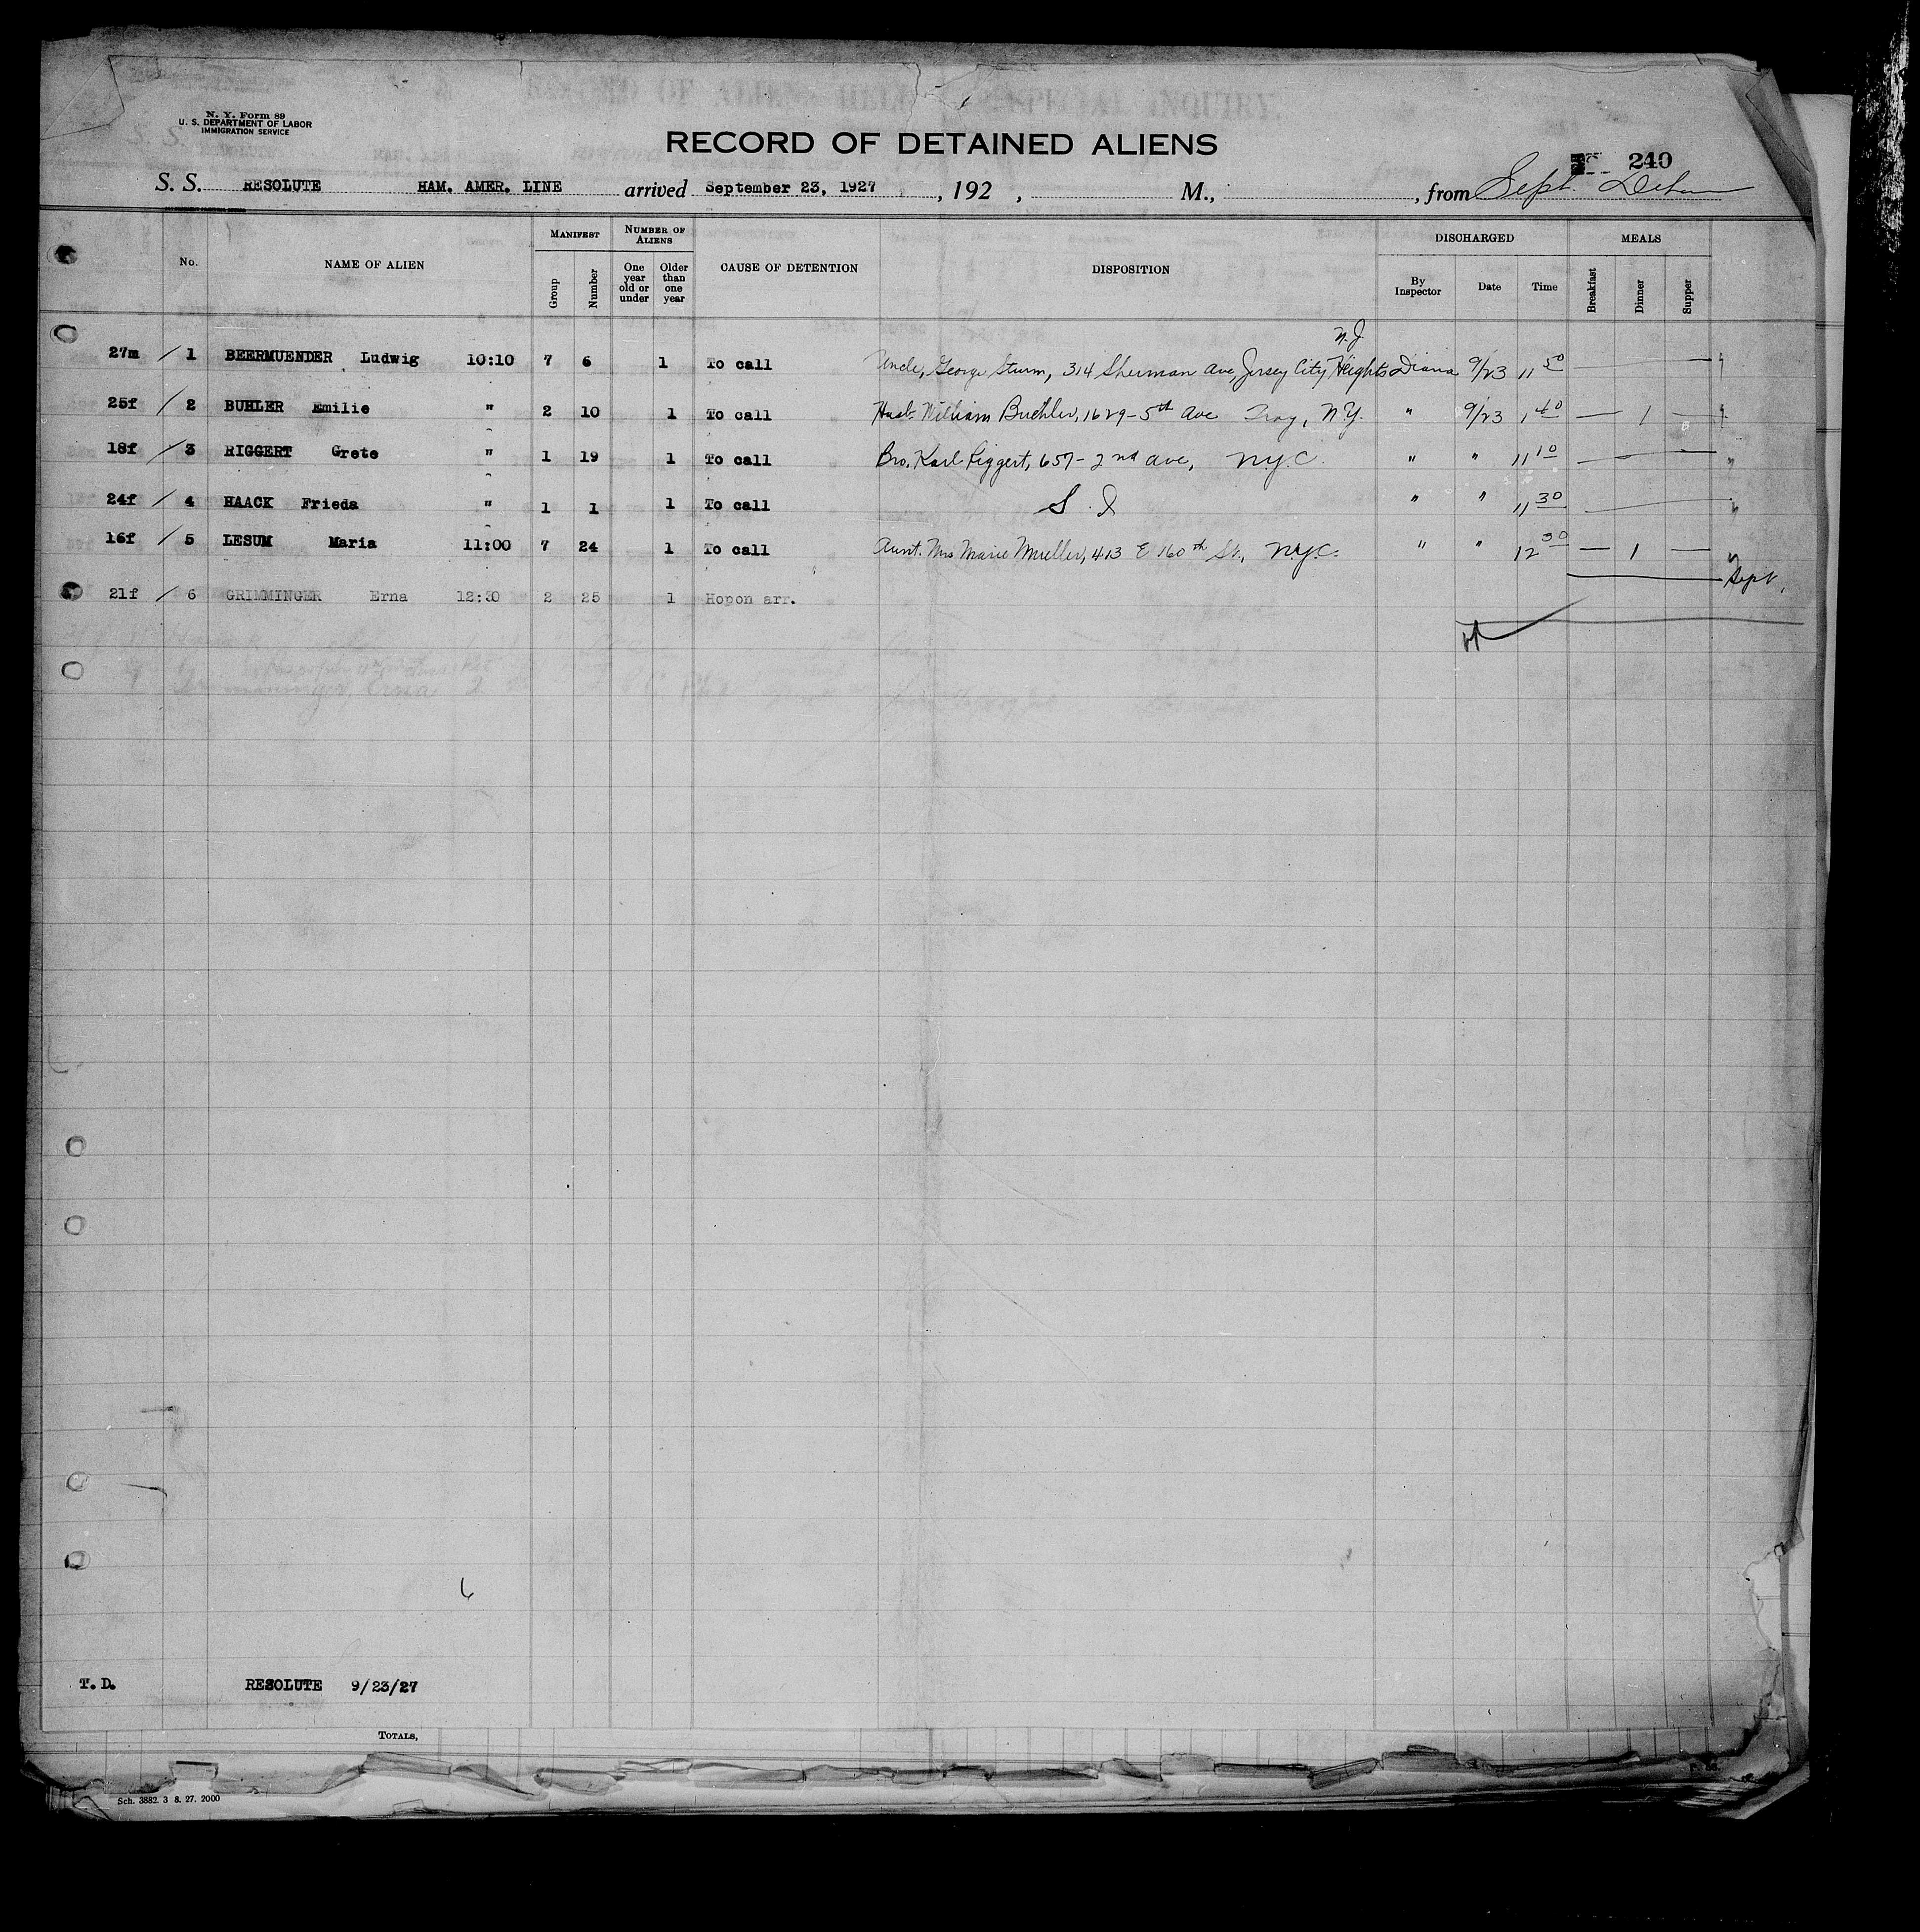 N. Y. Form 89
U. S. DEPARTMENT OF LABOR
IMMIGRATION SERVICE
RECORD OF DETAINED ALIENS
240
S. S. RESOLUTE HAM. AMER. LINE arrived September 23, 1927, 192 , M., , from Sept.
No. NAME OF ALIEN MANIFEST Group Number NUMBER OF ALIENS One year old or under Older than one year CAUSE OF DETENTION DISPOSITION DISCHARGED By Inspector Date Time MEALS Breakfast Dinner Supper
N.J
27m / 1 BEERMUENDER Ludwig 10:10 7 6 1 To call Uncle, George Sturm, 314 Sherman Ave, Jersey City Heights Diana 9/23 11 50
25f / 2 BUHLER Emilie " 2 10 1 To call Husb. William Buehler, 1629-5th Ave Troy, N.Y. " 9/23 1 40 — 1 —
18f / 3 RIGGERT Grete " 1 19 1 To call Bro. Karl Riggert, 657-2nd Ave, N.Y.C. " " 11 10
24f / 4 HAACK Frieda " 1 1 1 To call S.I " " 11 30
16f / 5 LESUM Maria 11:00 7 24 1 To call Aunt. Mrs Marie Mueller, 413 E 160th St., N.Y.C. " " 12 30 — 1 —
Sept
21f / 6 GRIMMINGER Erna 12:30 2 25 1 Hopon arr.
6
T. D. RESOLUTE 9/23/27
TOTALS,
Sch. 3882. 3 8. 27. 2000